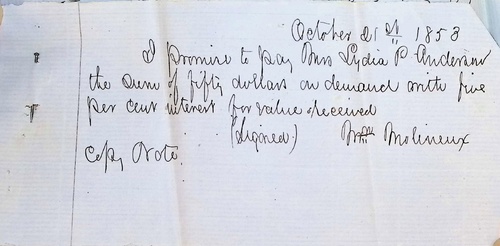 October 21st 1853
I promise to pay Mrs Lydia P Anderson
the Sum of fifty dollars on demand with five
per cent interest for value received
(Signed) Wm Molineux
Copy Note